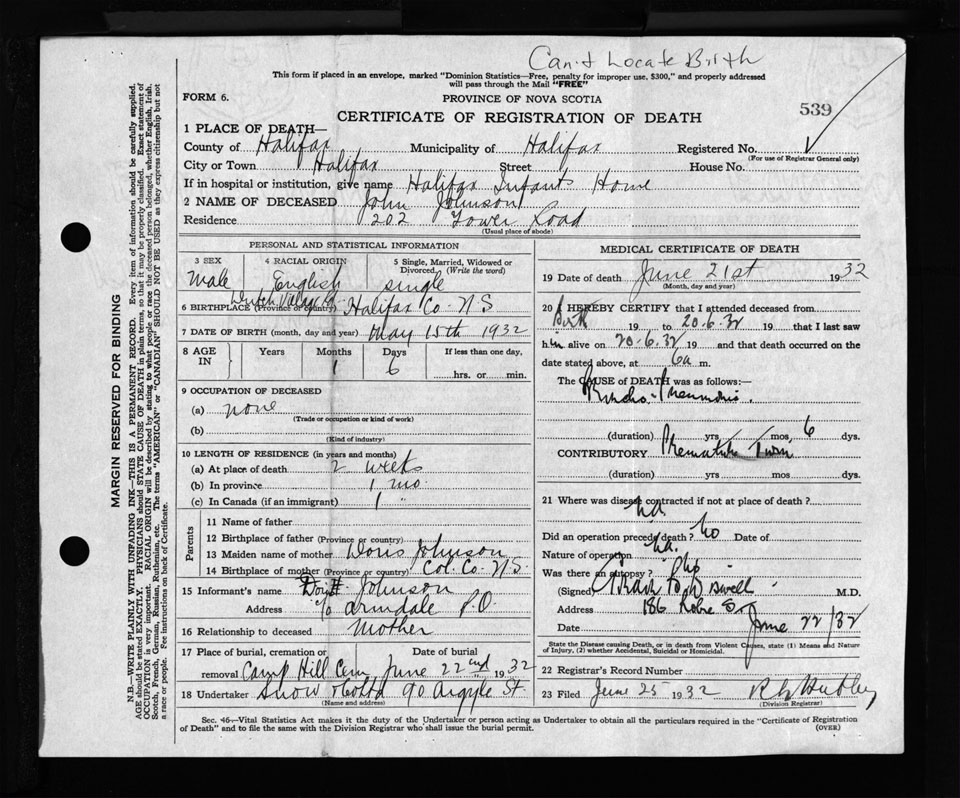 Can't Locate Birth
This form if placed in an envelope, marked "Dominion Statistics—Free, penalty for improper use, $300," and properly addressed
will pass through the Mail "FREE"
FORM 6.
PROVINCE OF NOVA SCOTIA
539
CERTIFICATE OF REGISTRATION OF DEATH
1 PLACE OF DEATH—
County of Halifax Municipality of Halifax Registered No.
(For use of Registrar General only)
City or Town Halifax Street House No.
If in hospital or institution, give name Halifax Infants Home
2 NAME OF DECEASED John Johnson
Residence 202 Tower Road
(Usual place of abode)
PERSONAL AND STATISTICAL INFORMATION
3 SEX 4 RACIAL ORIGIN 5 Single, Married, Widowed or Divorced, (Write the word)
Male English single
6 BIRTHPLACE (Province or country) Dutch Village Rd. Halifax Co. N S
7 DATE OF BIRTH (month, day and year) May 15th 1932
8 AGE IN Years Months Days If less than one day,
1 6 hrs. or min.
9 OCCUPATION OF DECEASED
(a) none
(Trade or occupation or kind of work)
(b)
(Kind of industry)
10 LENGTH OF RESIDENCE (in years and months)
(a) At place of death 2 weeks
(b) In province 1 mo.
(c) In Canada (if an immigrant) 1 "
Parents
11 Name of father
12 Birthplace of father (Province or country)
13 Maiden name of mother Doris Johnson
14 Birthplace of mother (Province or country) Col. Co. N.S.
15 Informant's name Johnson
Address c/o Armdale P.O.
16 Relationship to deceased Mother
17 Place of burial, cremation or removal Date of burial
Camp Hill Cem June 22nd 1932
18 Undertaker Snow & Co Ltd 90 Argyle St.
(Name and address)
MEDICAL CERTIFICATE OF DEATH
19 Date of death June 21st 1932
(Month, day and year)
20 I HEREBY CERTIFY that I attended deceased from
Birth 19 to 20.6.32 19 that I last saw
him alive on 20.6.32 19 and that death occurred on the
date stated above, at 6a m.
The CAUSE of DEATH was as follows:—
Broncho-Pneumonia.
(duration) yrs mos, 6 dys.
CONTRIBUTORY Premature Twin
(duration) yrs mos dys.
21 Where was disease contracted if not at place of death?
na
Did an operation precede death? no Date of
Nature of operation na.
Was there an autopsy?
(Signed) M.D.
Address 186 Robie St
Date June 22/32
State the Disease causing Death, or in death from Violent Causes, state (1) Means and Nature of Injury, (2) whether Accidental, Suicidal or Homicidal.
22 Registrar's Record Number
23 Filed June 25 1932
(Division Registrar)
Sec. 46—Vital Statistics Act makes it the duty of the Undertaker or person acting as Undertaker to obtain all the particulars required in the "Certificate of Registration
of Death" and to file the same with the Division Registrar who shall issue the burial permit. (OVER)
MARGIN RESERVED FOR BINDING
N.B.—WRITE PLAINLY WITH UNFADING INK—THIS IS A PERMANENT RECORD. Every item of information should be carefully supplied.
AGE should be stated EXACTLY. PHYSICIANS should STATE CAUSE OF DEATH in plain terms, so that it may be properly classified. Exact statement of
OCCUPATION is very important. RACIAL ORIGIN will be described by stating to what people or race the deceased person belonged, whether English, Irish,
Scotch, French, German, Russian, Ruthenian, etc. The terms "AMERICAN" or "CANADIAN" SHOULD NOT BE USED as they express citizenship but not
a race or people. Fee instructions on back of Certificate.